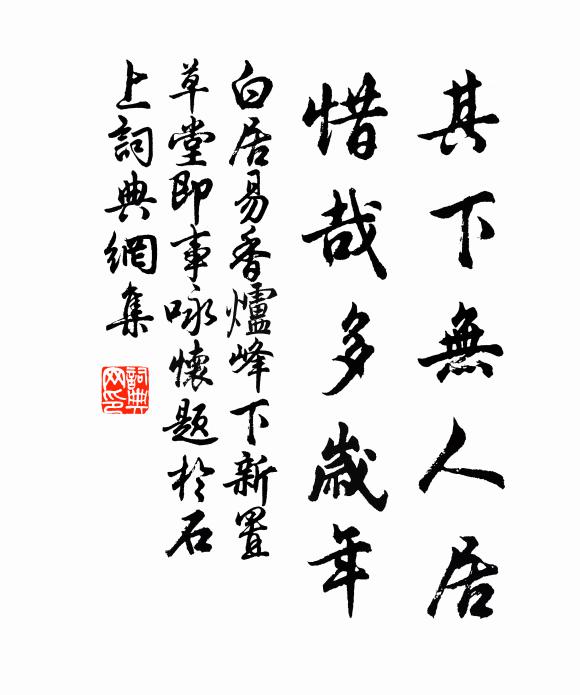 其下無人居
惜哉多歲年
白居易香爐峰下新置
草堂即事咏懷題於石
上詞典網集
詞典網印